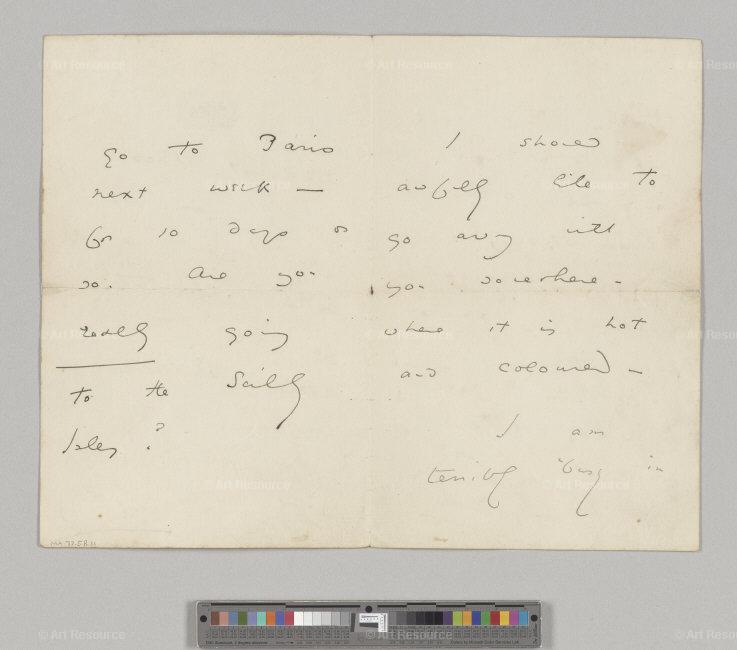 go to Paris
next week —
for 10 days or
so. Are you
really going
to the Scilly
Isles?
I should
awfully like to
go away with
you somewhere –
where it is hot
and coloured –
I am
terribly busy in
MA 7258.11
© Art Resource